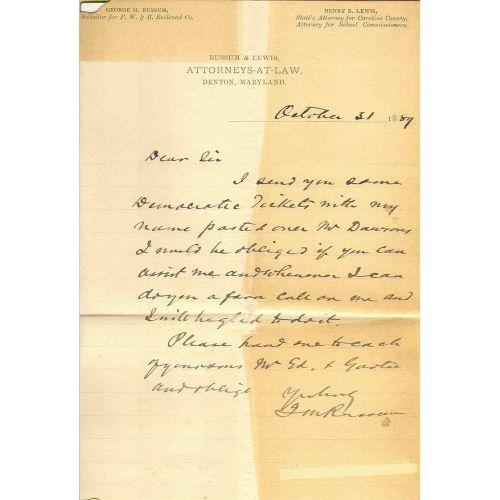 GEORGE M. RUSSUM,
Solicitor for P. W. & B. Railroad Co.
HENRY R. LEWIS,
State's Attorney for Caroline County,
Attorney for School Commissioners.
RUSSUM & LEWIS,
ATTORNEYS-AT-LAW,
DENTON, MARYLAND.
October 31 1889
Dear Sir
I send you some
Democratic Tickets with my
name pasted over Mr Dawsons
I would be obliged if you can
assist me and whenever I can
do you a favor call on me and
I will be glad to do it.
Please hand one to each
of your sons Mr Ed. &
and oblige
Yours truly
Geo M Russum